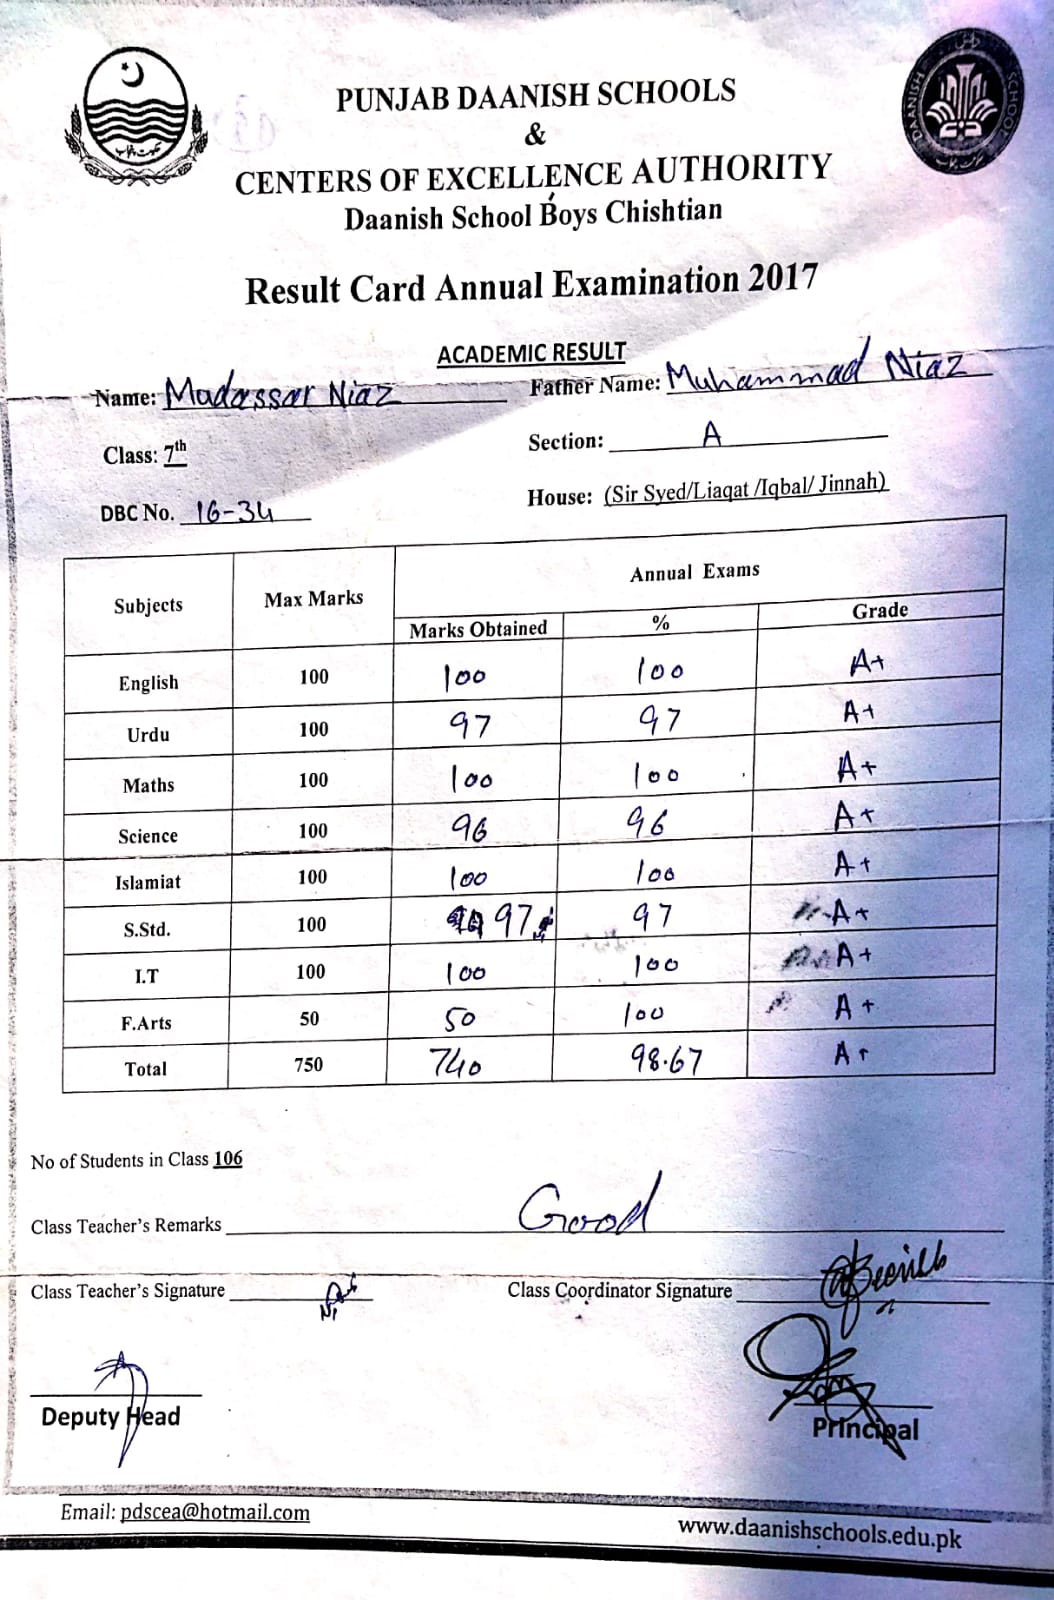 PUNJAB DAANISH SCHOOLS
&
CENTERS OF EXCELLENCE AUTHORITY
Daanish School Boys Chishtian
DAANISH SCHOOL
Result Card Annual Examination 2017
ACADEMIC RESULT
Name: Mudassar Niaz Father Name: Muhammad Niaz
Class: 7th Section: A
DBC No. 16-34 House: (Sir Syed/Liaqat /Iqbal/ Jinnah)
Subjects Max Marks Annual Exams
Marks Obtained % Grade
English 100 100 100 A+
Urdu 100 97 97 A+
Maths 100 100 100 A+
Science 100 96 96 A+
Islamiat 100 100 100 A+
S.Std. 100 97 97 A+
I.T 100 100 100 A+
F.Arts 50 50 100 A+
Total 750 740 98.67 A+
No of Students in Class 106
Class Teacher's Remarks Good
Class Teacher's Signature Class Coordinator Signature
Deputy Head Principal
Email: pdscea@hotmail.com www.daanishschools.edu.pk